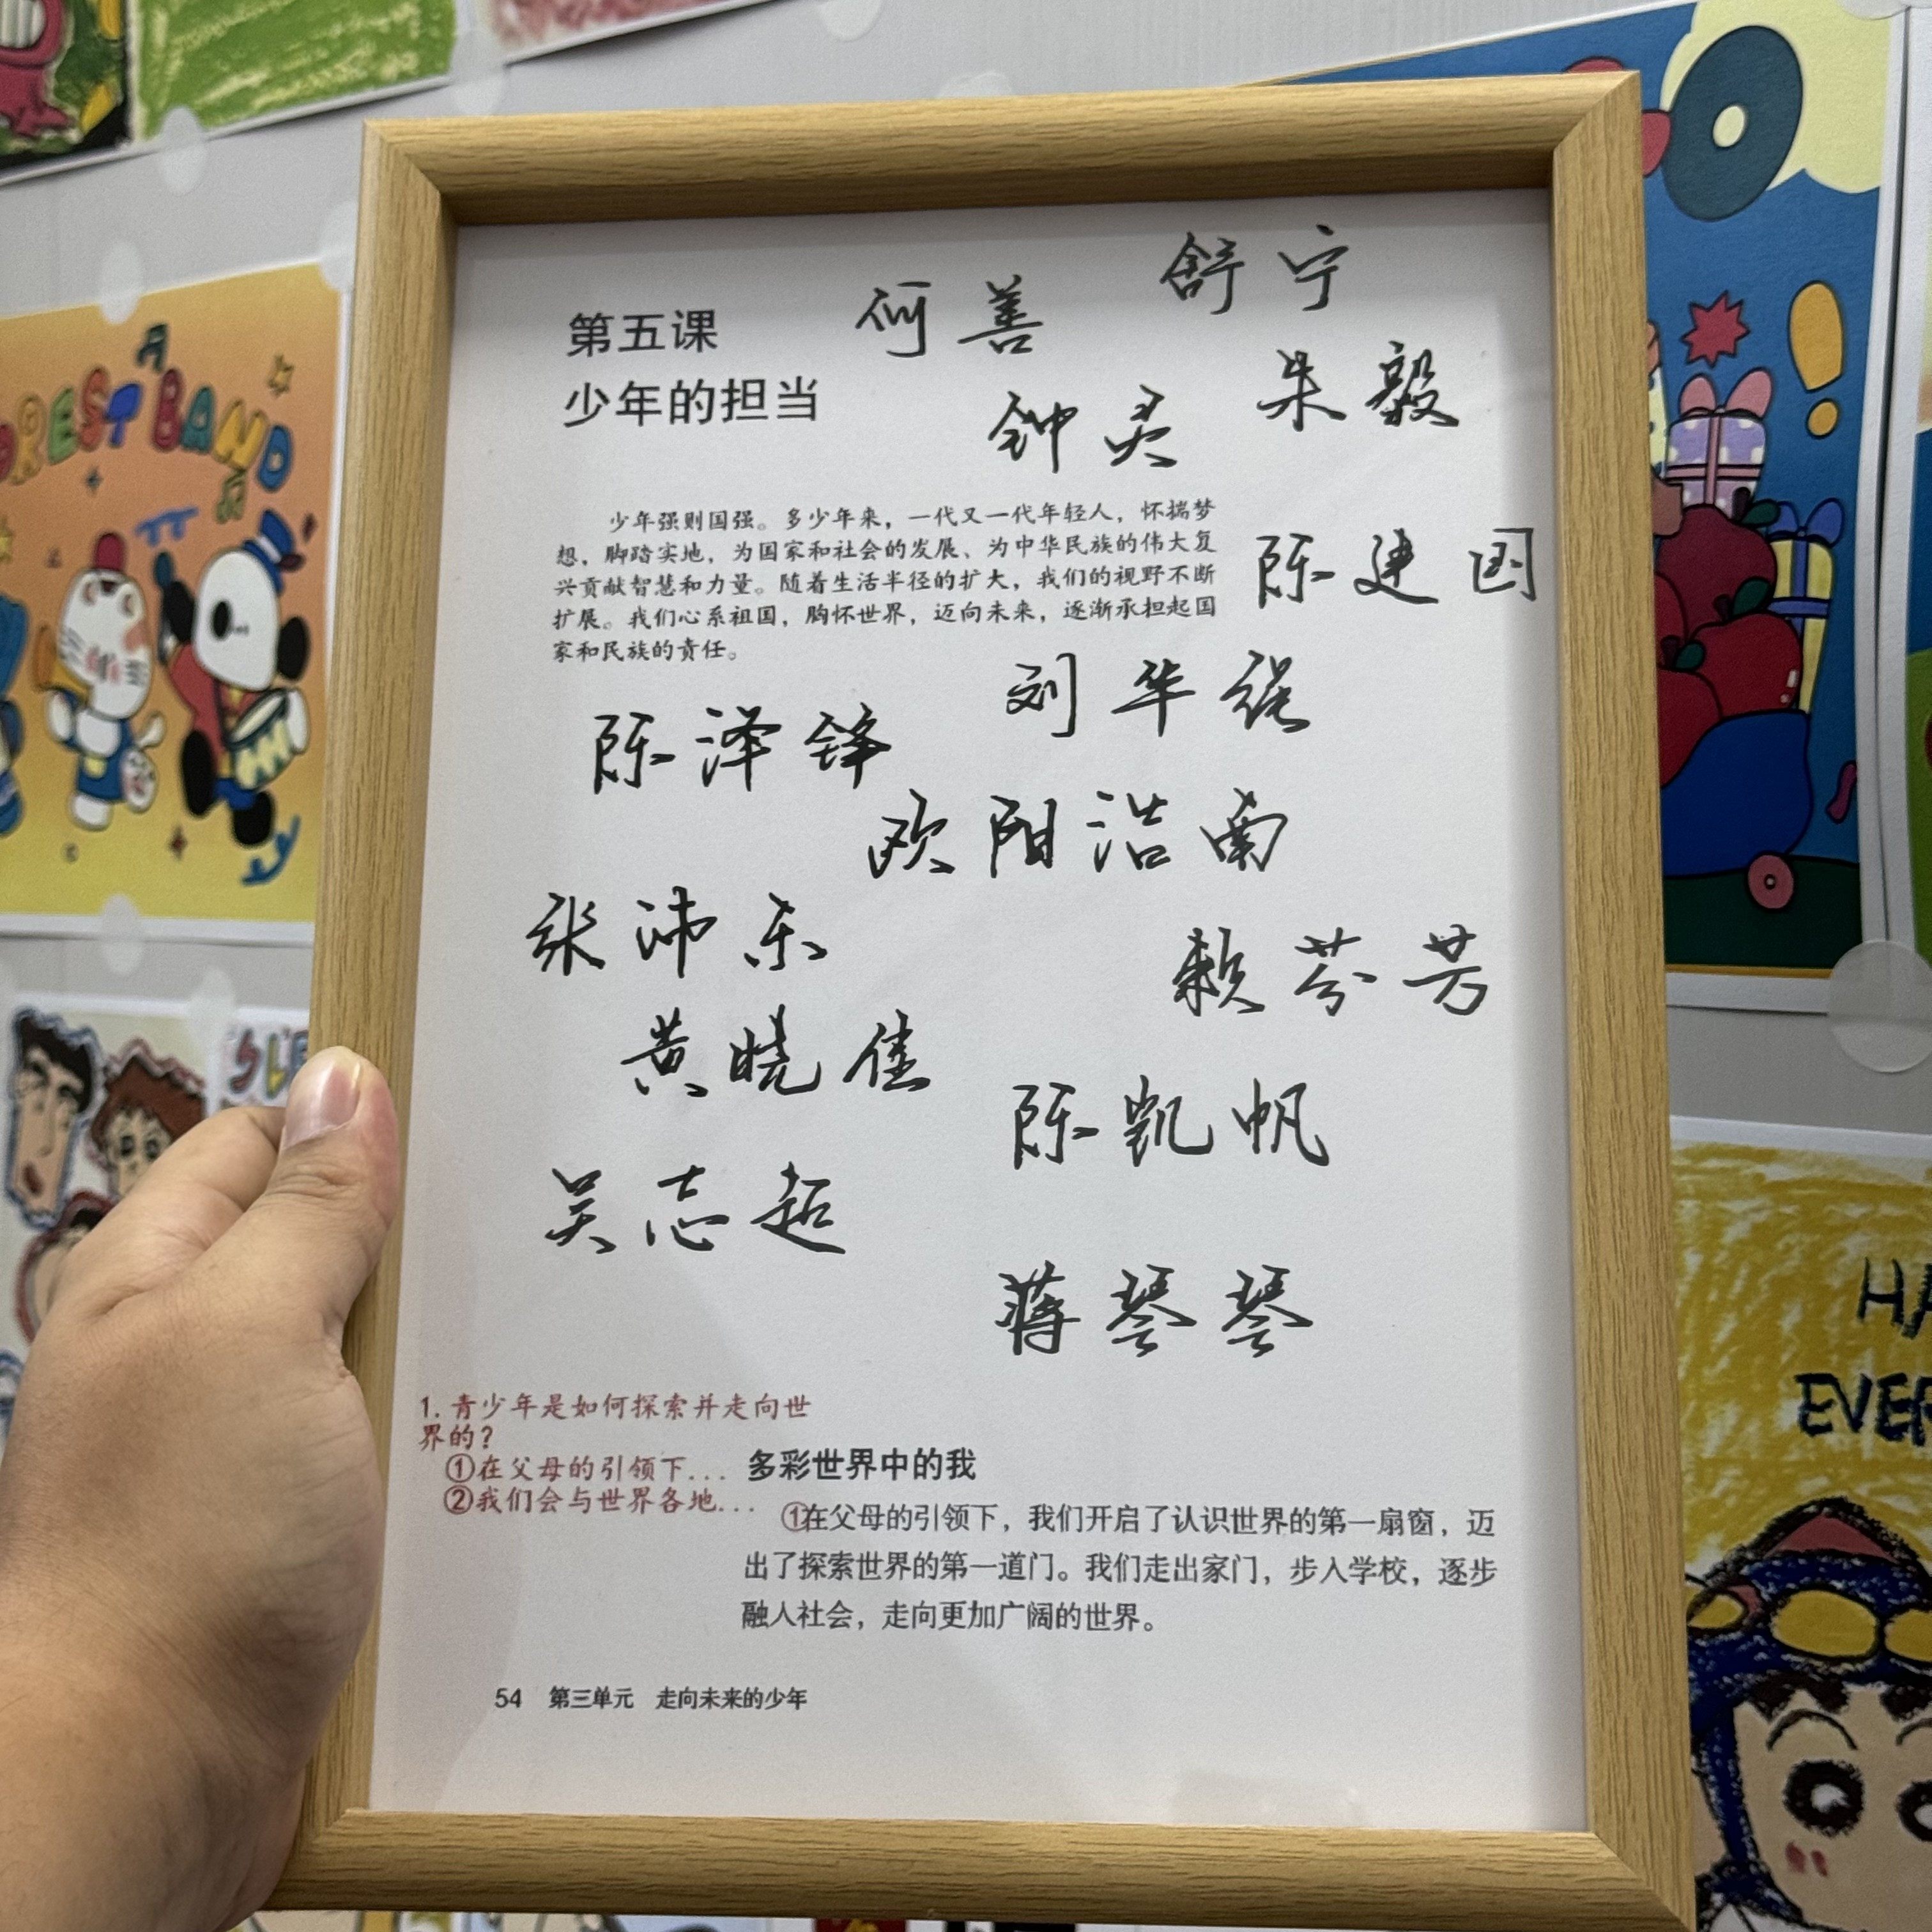 第五课
少年的担当
何善
舒宁
钟灵
朱毅
少年强则国强。多少年来，一代又一代年轻人，怀揣梦
想，脚踏实地，为国家和社会的发展、为中华民族的伟大复
兴贡献智慧和力量。随着生活半径的扩大，我们的视野不断
扩展。我们心系祖国，胸怀世界，迈向未来，逐渐承担起国
家和民族的责任。
陈建国
刘华强
陈泽锋
欧阳浩南
张沛乐
赖芬芳
黄晓佳
陈凯帆
吴志超
蒋琴琴
1. 青少年是如何探索并走向世
界的？
①在父母的引领下...
②我们会与世界各地...
多彩世界中的我
①在父母的引领下，我们开启了认识世界的第一扇窗，迈
出了探索世界的第一道门。我们走出家门，步入学校，逐步
融入社会，走向更加广阔的世界。
54 第三单元 走向未来的少年
REST BAND
HA
EVER